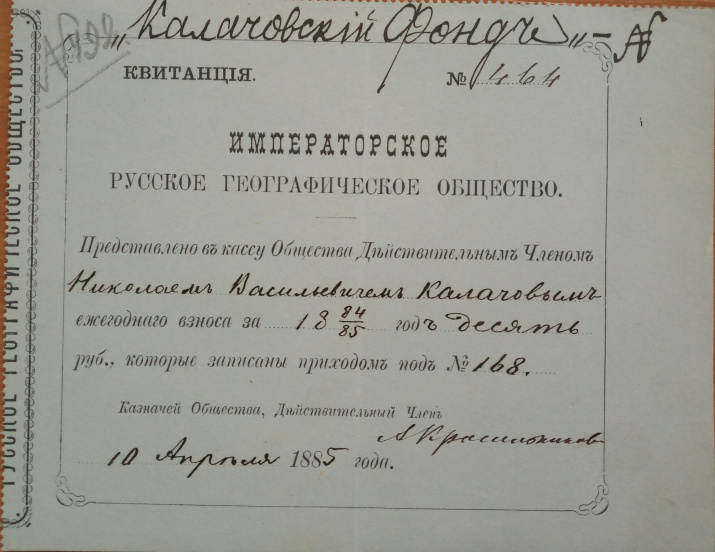 „Калачовскій Фондъ„ — №
КВИТАНЦІЯ. № 464
ИМПЕРАТОРСКОЕ
РУССКОЕ ГЕОГРАФИЧЕСКОЕ ОБЩЕСТВО.
Представлено въ кассу Общества Дѣйствительнымъ Членомъ
Николаемъ Васильевичемъ Калачовымъ
ежегоднаго взноса за 18 84/85 годъ десять
руб., которые записаны приходомъ подъ № 168.
Казначей Общества, Дѣйствительный Членъ
А Красильников
10 Апрѣля 1885 года.
РУССКОЕ ГЕОГРАФИЧЕСКОЕ ОБЩЕСТВО.